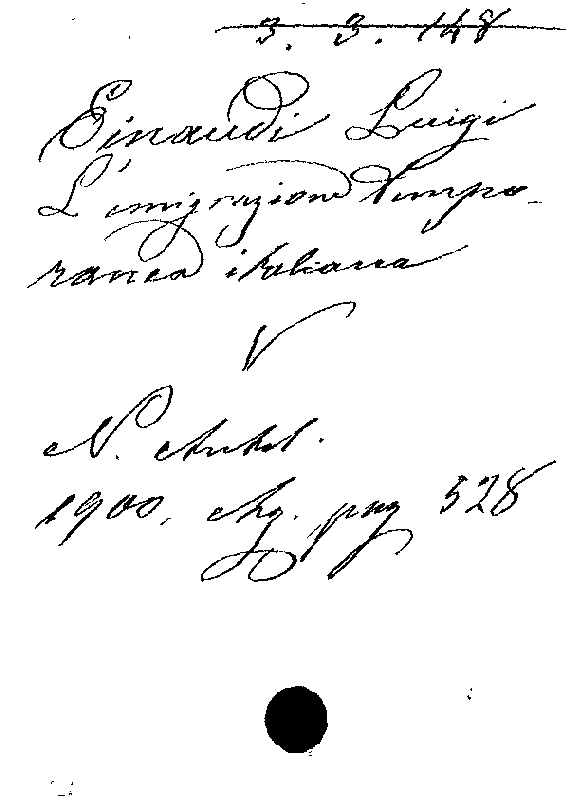 3. 3. 148
Einaudi Luigi
L'emigrazione tempo-
ranea italiana
V
N. Antol.
1900. Ag. pag 528